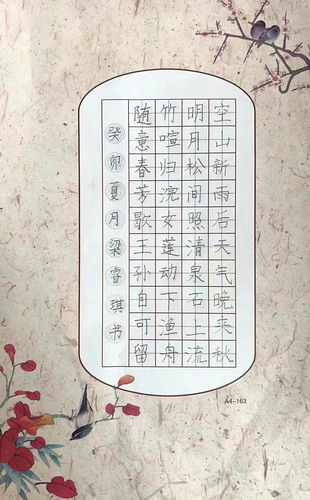 空山新雨后天气晚来秋
明月松间照清泉石上流
竹喧归浣女莲动下渔舟
随意春芳歇王孙自可留
癸卯夏月梁睿琪书
A4-163